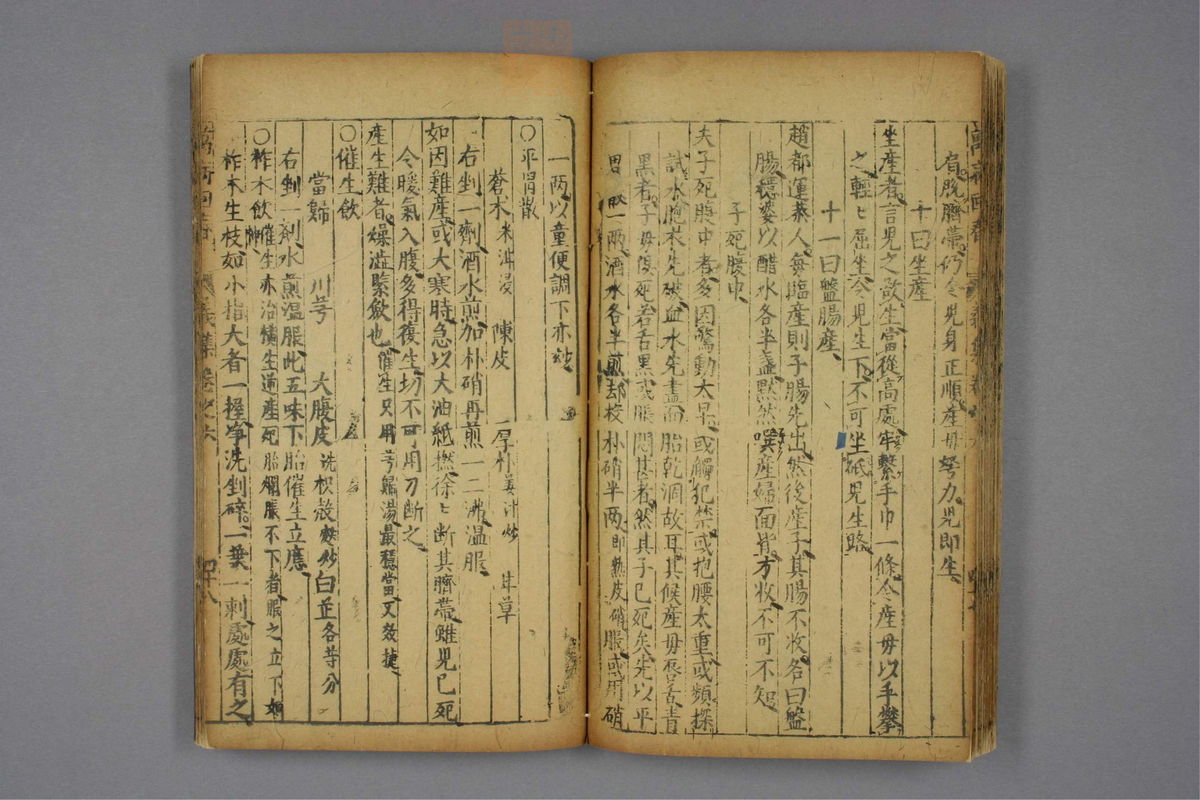 肩脫臍帶仍令兒身正順產母努力兒即生
十曰坐產
坐產者言兒之欲生當從高處牢繫手巾一條令產母以手攀
之輕匕屈坐令兒生下不可坐砥兒生路
十一曰盤腸產
趙都運恭人每臨產則子腸先出然後產子其腸不收名曰盤
腸穩婆以醋水各半盞默然噀產婦面背方收不可不知
子死腹中
夫子死腹中者多因驚動太早或觸犯禁或抱腰太重或頻探
試水胞衣先破血水先盡而胎乾涸故耳其候產母唇舌青
黑者子母俱死若舌黑或脹悶甚者然其子已死矣先以平
胃一兩酒水各半煎却投朴硝半兩即熟皮硝服或用硝
一兩以童便調下亦妙
○平胃散
蒼术米泔浸 陳皮 厚朴姜汁炒 甘草
右剉一劑酒水煎加朴硝再煎一二沸溫服
如因難產或大寒時急以大油紙撚徐匕斷其臍帶雖兒已死
令暖氣入腹多得復生切不可用刀斷之
產生難者燥澁緊斂也催生只用芎歸湯最穩當又效捷
○催生飲
當歸 川芎 大腹皮洗 枳殼麩炒 白芷各等分
右剉一劑水煎溫服此五味下胎催生立應
○柞木飲催生亦治橫生逆產死胎爛脹不下者服之立下如
柞木生枝如小指大者一握淨洗剉碎一葉一刺處處有之
萬病回春 義集卷之六 四十八